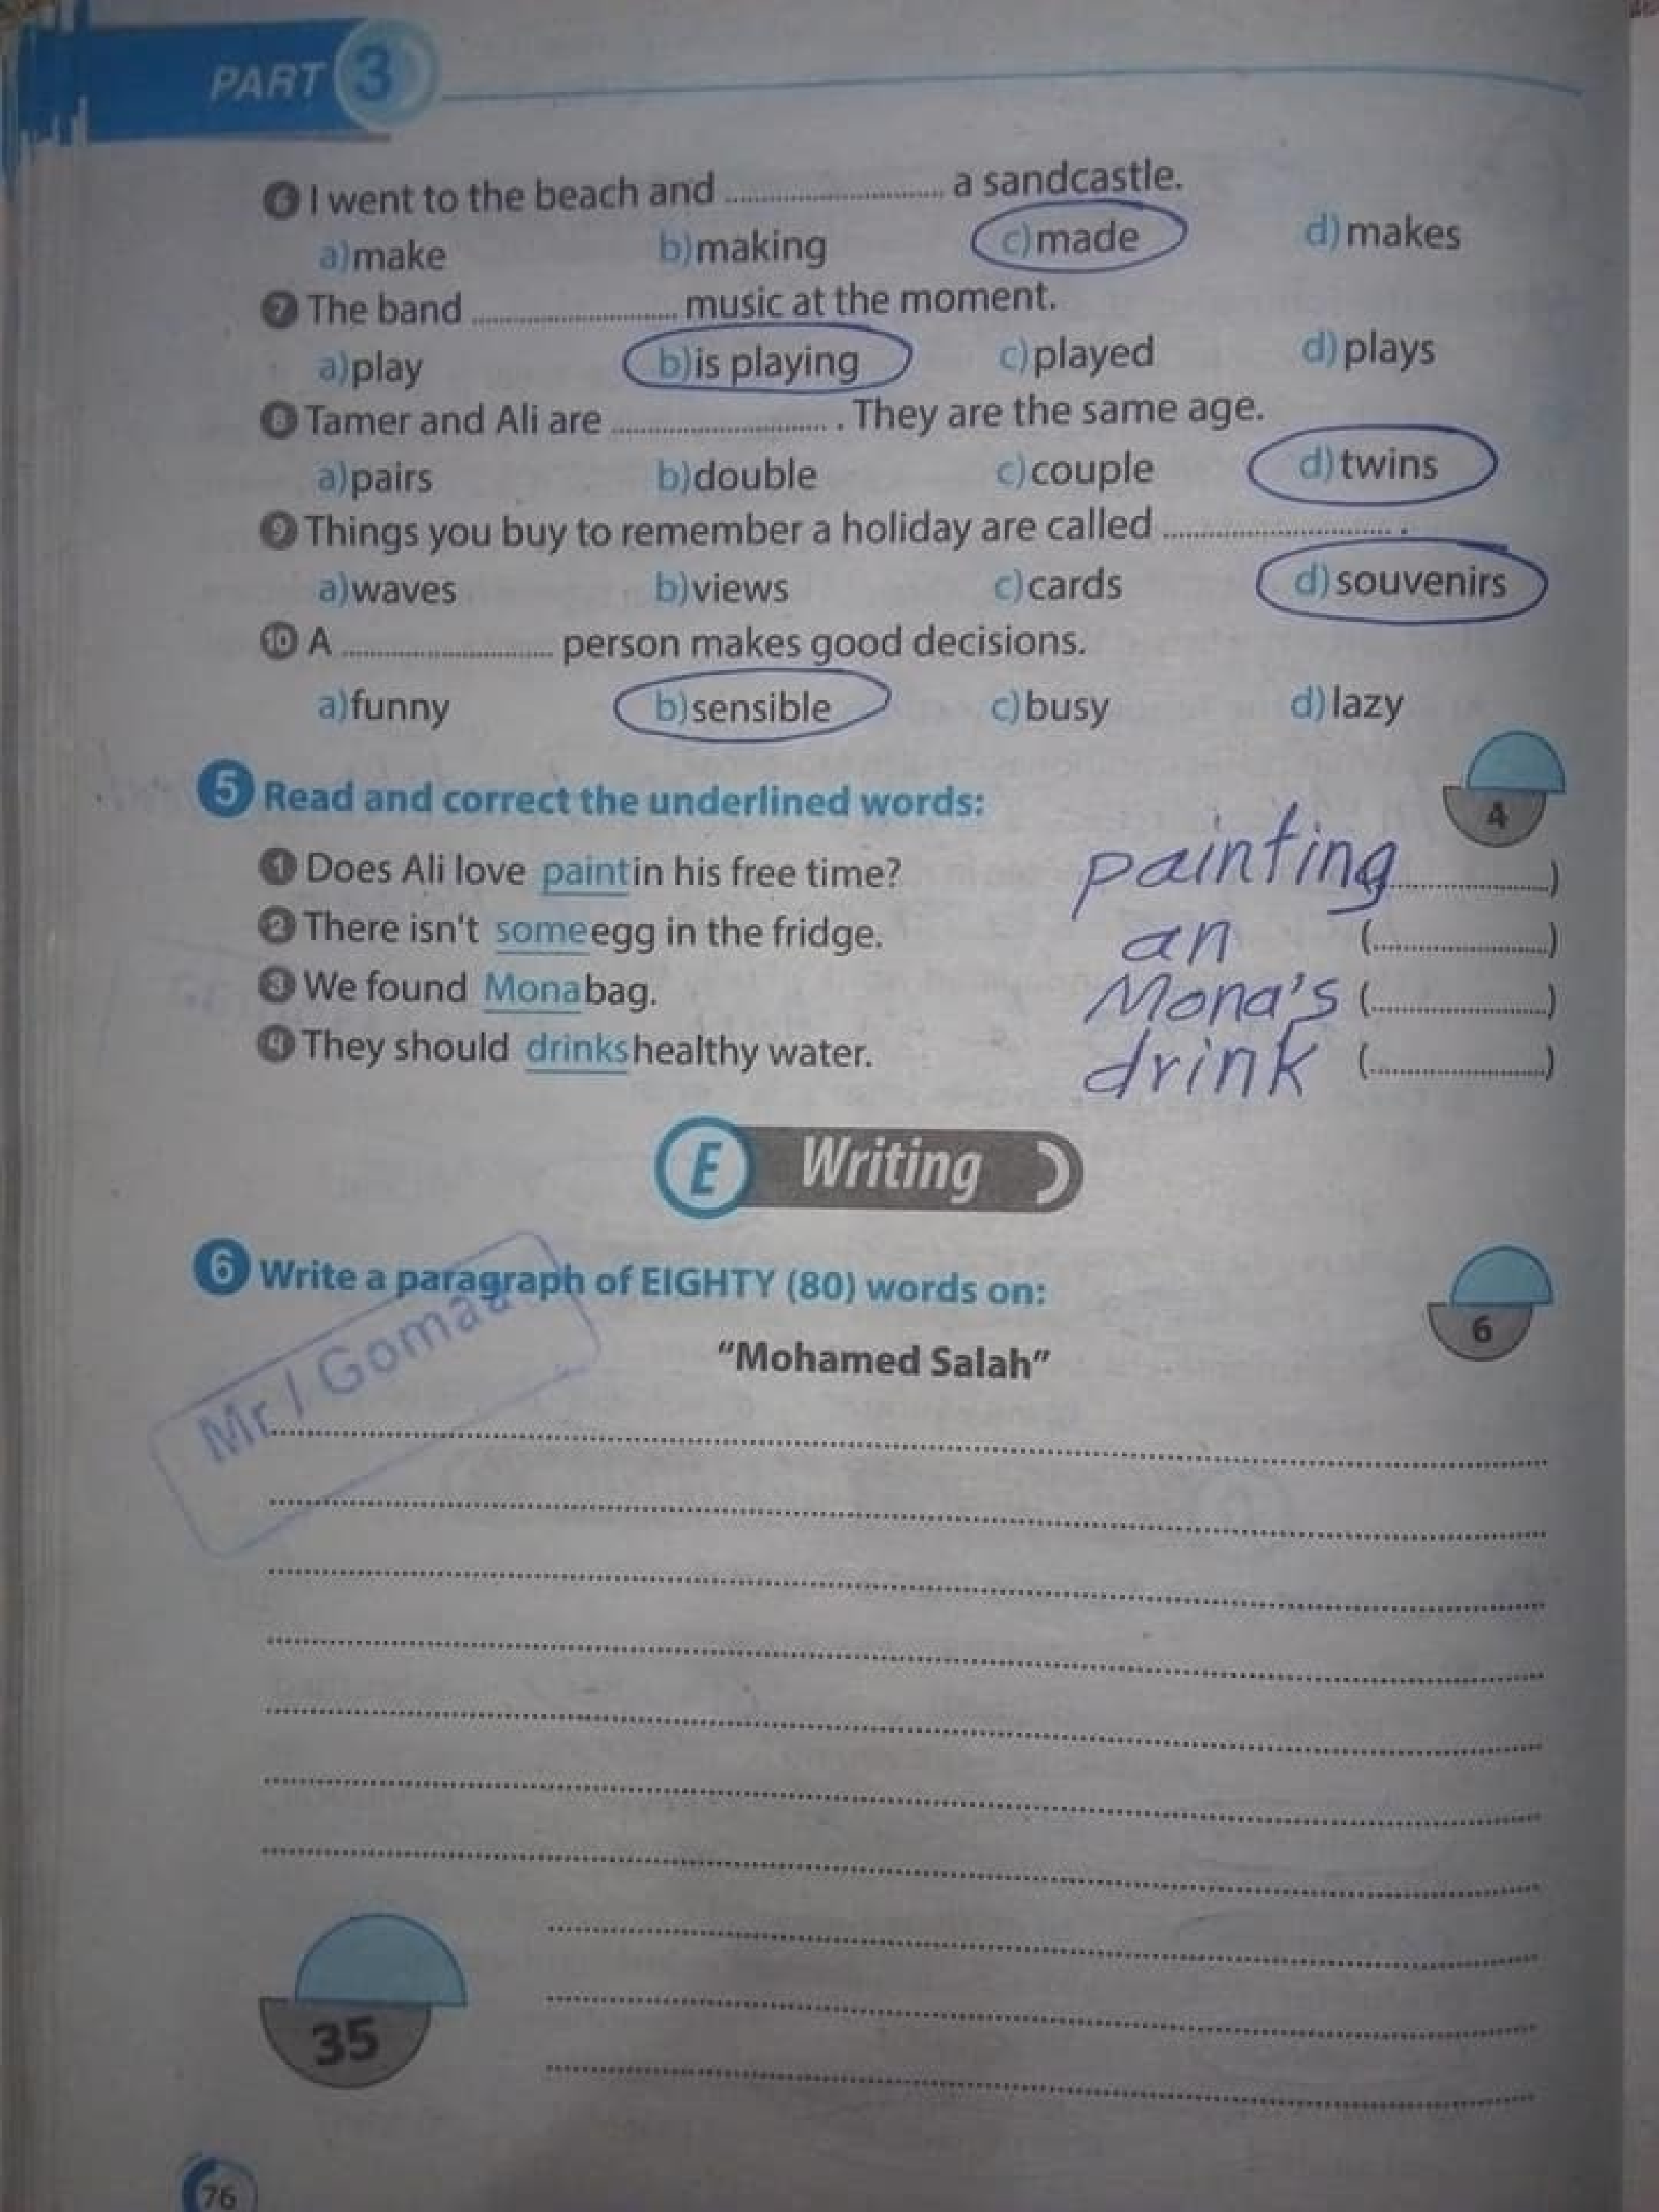 PART 3
6 I went to the beach and ........................ a sandcastle.
a) make b) making c) made d) makes
7 The band ........................ music at the moment.
a) play b) is playing c) played d) plays
8 Tamer and Ali are ........................ . They are the same age.
a) pairs b) double c) couple d) twins
9 Things you buy to remember a holiday are called ........................ .
a) waves b) views c) cards d) souvenirs
10 A ........................ person makes good decisions.
a) funny b) sensible c) busy d) lazy
5 Read and correct the underlined words: 4
1 Does Ali love paint in his free time? painting ..................)
2 There isn't some egg in the fridge. an (..................)
3 We found Mona bag. Mona's (..................)
4 They should drinks healthy water. drink (..................)
E Writing
6 Write a paragraph of EIGHTY (80) words on: 6
"Mohamed Salah"
Mr / Gomaa
35
76